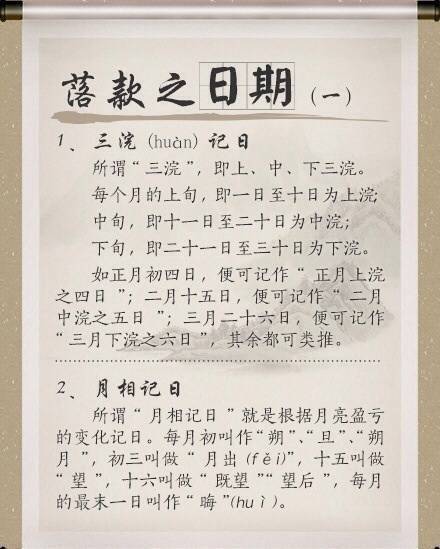 落款之日期（一）
1、三浣(huàn)记日
所谓“三浣”，即上、中、下三浣。
每个月的上旬，即一日至十日为上浣；
中旬，即十一日至二十日为中浣；
下旬，即二十一日至三十日为下浣。
如正月初四日，便可记作“正月上浣
之四日”；二月十五日，便可记作“二月
中浣之五日”；三月二十六日，便可记作
“三月下浣之六日”，其余都可类推。
2、月相记日
所谓“月相记日”就是根据月亮盈亏
的变化记日。每月初叫作“朔”、“旦”、“朔
月”，初三叫做“月出(fěi)”，十五叫做
“望”，十六叫做“既望”“望后”，每月
的最末一日叫作“晦”(huì)。